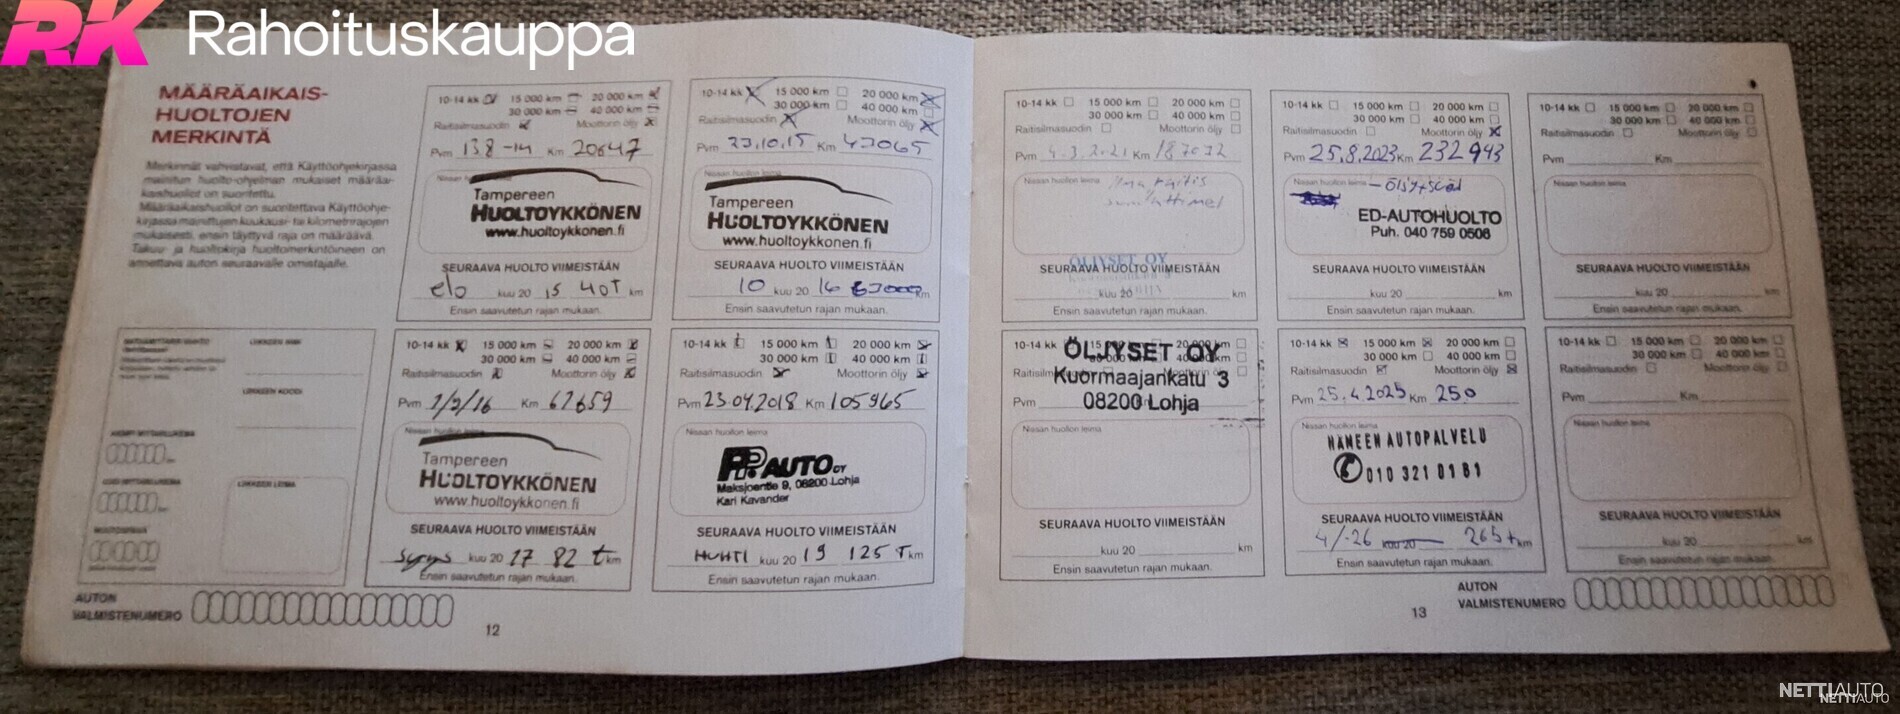 RK Rahoituskauppa
MÄÄRÄAIKAIS-
HUOLTOJEN
MERKINTÄ
Merkinnät vahvistavat, että Käyttöohjekirjassa
mainitun huolto-ohjelman mukaiset määräai-
kaishuollot on suoritettu.
Määräaikaishuollot on suoritettava Käyttöohje-
kirjassa mainittujen kuukausi- tai kilometrirajojen
mukaisesti, ensin täyttyvä raja on määräävä.
Takuu- ja huoltokirja huoltomerkintöineen on
annettava auton seuraavalle omistajalle.
10-14 kk 15 000 km 20 000 km
30 000 km 40 000 km
Raitisilmasuodin Moottorin öljy
Pvm 138-14 Km 20647
Nissan huollon leima
Tampereen
HUOLTOYKKÖNEN
www.huoltoykkonen.fi
SEURAAVA HUOLTO VIIMEISTÄÄN
elo kuu 20 15 40T km
Ensin saavutetun rajan mukaan.
10-14 kk 15 000 km 20 000 km
30 000 km 40 000 km
Raitisilmasuodin Moottorin öljy
Pvm 23.10.15 Km 43065
Nissan huollon leima
Tampereen
HUOLTOYKKÖNEN
www.huoltoykkonen.fi
SEURAAVA HUOLTO VIIMEISTÄÄN
10 kuu 20 16 63000 km
Ensin saavutetun rajan mukaan.
LIIKKEEN NIMI
LIIKKEEN KOODI
LIIKKEEN LEIMA
10-14 kk 15 000 km 20 000 km
30 000 km 40 000 km
Raitisilmasuodin Moottorin öljy
Pvm 1/9/16 Km 62659
Nissan huollon leima
Tampereen
HUOLTOYKKÖNEN
www.huoltoykkonen.fi
SEURAAVA HUOLTO VIIMEISTÄÄN
syys kuu 20 17 82 t km
Ensin saavutetun rajan mukaan.
10-14 kk 15 000 km 20 000 km
30 000 km 40 000 km
Raitisilmasuodin Moottorin öljy
Pvm 23.04.2018 Km 105965
Nissan huollon leima
PP AUTO OY
Maksjoentie 9, 08200 Lohja
Kari Kavander
SEURAAVA HUOLTO VIIMEISTÄÄN
HUHTI kuu 20 19 125 T km
Ensin saavutetun rajan mukaan.
AUTON
VALMISTENUMERO
12
10-14 kk 15 000 km 20 000 km
30 000 km 40 000 km
Raitisilmasuodin Moottorin öljy
Pvm 4.3.2.21 Km 187032
Nissan huollon leima
ÖLJYSET OY
SEURAAVA HUOLTO VIIMEISTÄÄN
kuu 20 km
Ensin saavutetun rajan mukaan.
10-14 kk 15 000 km 20 000 km
30 000 km 40 000 km
Raitisilmasuodin Moottorin öljy
Pvm 25.8.2023 Km 232943
Nissan huollon leima
ED-AUTOHUOLTO
Puh. 040 759 0506
SEURAAVA HUOLTO VIIMEISTÄÄN
kuu 20 km
Ensin saavutetun rajan mukaan.
10-14 kk 15 000 km 20 000 km
30 000 km 40 000 km
Raitisilmasuodin Moottorin öljy
Pvm Km
Nissan huollon leima
SEURAAVA HUOLTO VIIMEISTÄÄN
kuu 20 km
Ensin saavutetun rajan mukaan.
10-14 kk 15 000 km 20 000 km
ÖLJYSET OY
Kuormaajankatu 3
08200 Lohja
Pvm
Nissan huollon leima
SEURAAVA HUOLTO VIIMEISTÄÄN
kuu 20 km
Ensin saavutetun rajan mukaan.
10-14 kk 15 000 km 20 000 km
30 000 km 40 000 km
Raitisilmasuodin Moottorin öljy
Pvm 25.4.2025 Km 250
Nissan huollon leima
HÄMEEN AUTOPALVELU
010 321 0181
SEURAAVA HUOLTO VIIMEISTÄÄN
4/-26 kuu 20 265 t km
Ensin saavutetun rajan mukaan.
10-14 kk 15 000 km 20 000 km
30 000 km 40 000 km
Raitisilmasuodin Moottorin öljy
Pvm Km
Nissan huollon leima
SEURAAVA HUOLTO VIIMEISTÄÄN
kuu 20 km
Ensin saavutetun rajan mukaan.
AUTON
VALMISTENUMERO
13
NETTIAUTO
NETTIAUTO